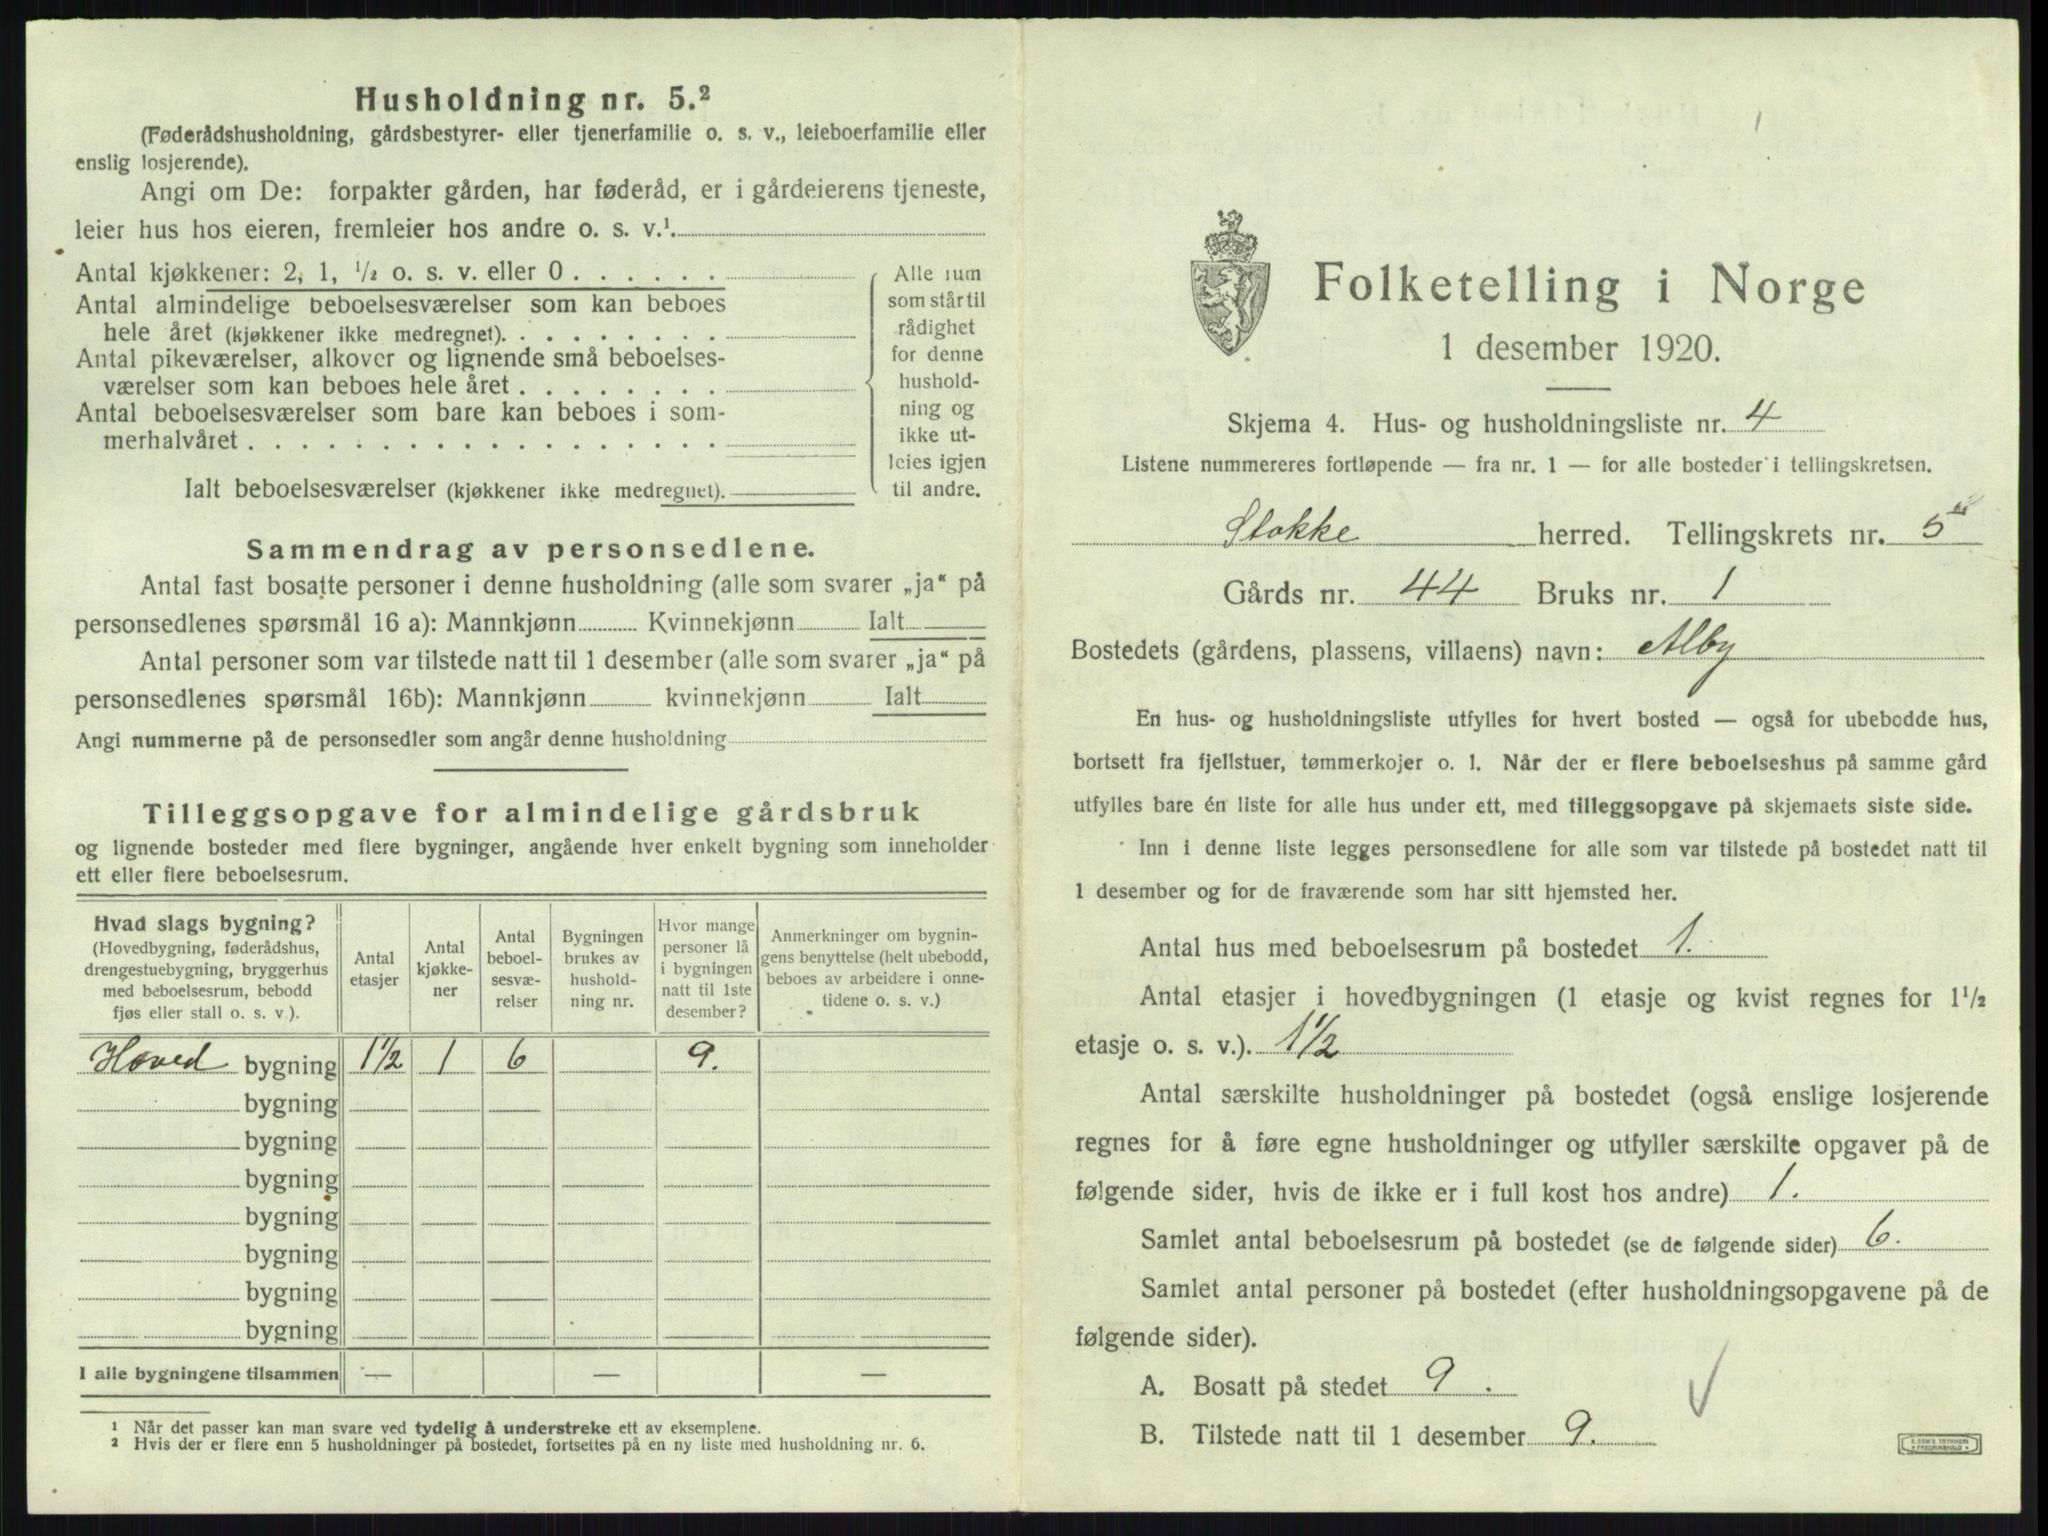 Husholdning nr. 5.²
(Føderådshusholdning, gårdsbestyrer- eller tjenerfamilie o. s. v., leieboerfamilie eller
enslig losjerende).
Angi om De: forpakter gården, har føderåd, er i gårdeierens tjeneste,
leier hus hos eieren, fremleier hos andre o. s. v.¹.
Antal kjøkkener: 2, 1, ½ o. s. v. eller 0 . . . . . .
Antal almindelige beboelsesværelser som kan beboes
hele året (kjøkkener ikke medregnet). . . . . . . . .
Antal pikeværelser, alkover og lignende små beboelses-
værelser som kan beboes hele året . . . . . . . .
Antal beboelsesværelser som bare kan beboes i som-
merhalvåret . . . . . . . . . . . . . . . . . .
Ialt beboelsesværelser (kjøkkener ikke medregnet).
Alle rum
som står til
rådighet
for denne
hushold-
ning og
ikke ut-
leies igjen
til andre.
Sammendrag av personsedlene.
Antal fast bosatte personer i denne husholdning (alle som svarer „ja“ på
personsedlenes spørsmål 16 a): Mannkjønn Kvinnekjønn Ialt
Antal personer som var tilstede natt til 1 desember (alle som svarer „ja“ på
personsedlenes spørsmål 16b): Mannkjønn kvinnekjønn Ialt
Angi nummerne på de personsedler som angår denne husholdning
Tilleggsopgave for almindelige gårdsbruk
og lignende bosteder med flere bygninger, angående hver enkelt bygning som inneholder
ett eller flere beboelsesrum.
Hvad slags bygning?
(Hovedbygning, føderådshus,
drengestuebygning, bryggerhus
med beboelsesrum, bebodd
fjøs eller stall o. s. v.).
Antal
etasjer
Antal
kjøkke-
ner
Antal
beboel-
sesvæ-
relser
Bygningen
brukes av
hushold-
ning nr.
Hvor mange
personer lå
i bygningen
natt til 1ste
desember?
Anmerkninger om bygnin-
gens benyttelse (helt ubebodd,
beboes av arbeidere i onne-
tidene o. s. v.)
Hoved bygning 1½ 1 6 9.
bygning
bygning
bygning
bygning
bygning
bygning
bygning
I alle bygningene tilsammen — — —
¹ Når det passer kan man svare ved tydelig å understreke ett av eksemplene.
² Hvis der er flere enn 5 husholdninger på bostedet, fortsettes på en ny liste med husholdning nr. 6.
Folketelling i Norge
1 desember 1920.
Skjema 4. Hus- og husholdningsliste nr. 4
Listene nummereres fortløpende — fra nr. 1 — for alle bosteder i tellingskretsen.
Stokke herred. Tellingskrets nr. 5
Gårds nr. 44 Bruks nr. 1
Bostedets (gårdens, plassens, villaens) navn: Alby
En hus- og husholdningsliste utfylles for hvert bosted — også for ubebodde hus,
bortsett fra fjellstuer, tømmerkojer o. l. Når der er flere beboelseshus på samme gård
utfylles bare én liste for alle hus under ett, med tilleggsopgave på skjemaets siste side.
Inn i denne liste legges personsedlene for alle som var tilstede på bostedet natt til
1 desember og for de fraværende som har sitt hjemsted her.
Antal hus med beboelsesrum på bostedet 1.
Antal etasjer i hovedbygningen (1 etasje og kvist regnes for 1½
etasje o. s. v.). 1½
Antal særskilte husholdninger på bostedet (også enslige losjerende
regnes for å føre egne husholdninger og utfyller særskilte opgaver på de
følgende sider, hvis de ikke er i full kost hos andre) 1.
Samlet antal beboelsesrum på bostedet (se de følgende sider) 6.
Samlet antal personer på bostedet (efter husholdningsopgavene på de
følgende sider).
A. Bosatt på stedet 9.
B. Tilstede natt til 1 desember 9.